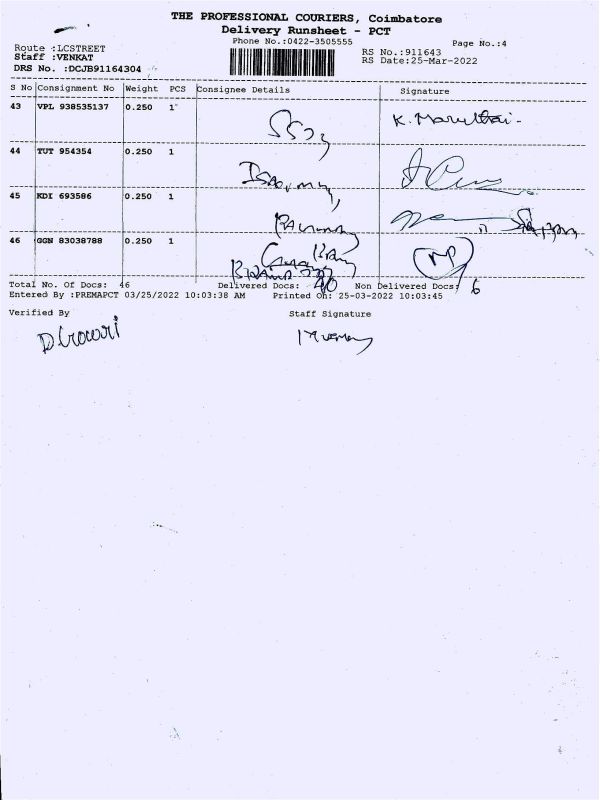 THE PROFESSIONAL COURIERS, Coimbatore
Delivery Runsheet - PCT
Phone No.:0422-3505555
Page No.:4
Route :LCSTREET
Staff :VENKAT
DRS No. :DCJB91164304
RS No.:911643
RS Date:25-Mar-2022
S No Consignment No Weight PCS Consignee Details Signature
43 VPL 938535137 0.250 1 K. Maruthai
44 TUT 954354 0.250 1
45 KDI 693586 0.250 1
46 GGN 83038788 0.250 1
Total No. Of Docs: 46 Delivered Docs: 40 Non Delivered Docs: 6
Entered By :PREMAPCT 03/25/2022 10:03:38 AM Printed On: 25-03-2022 10:03:45
Verified By Staff Signature
D Gowri